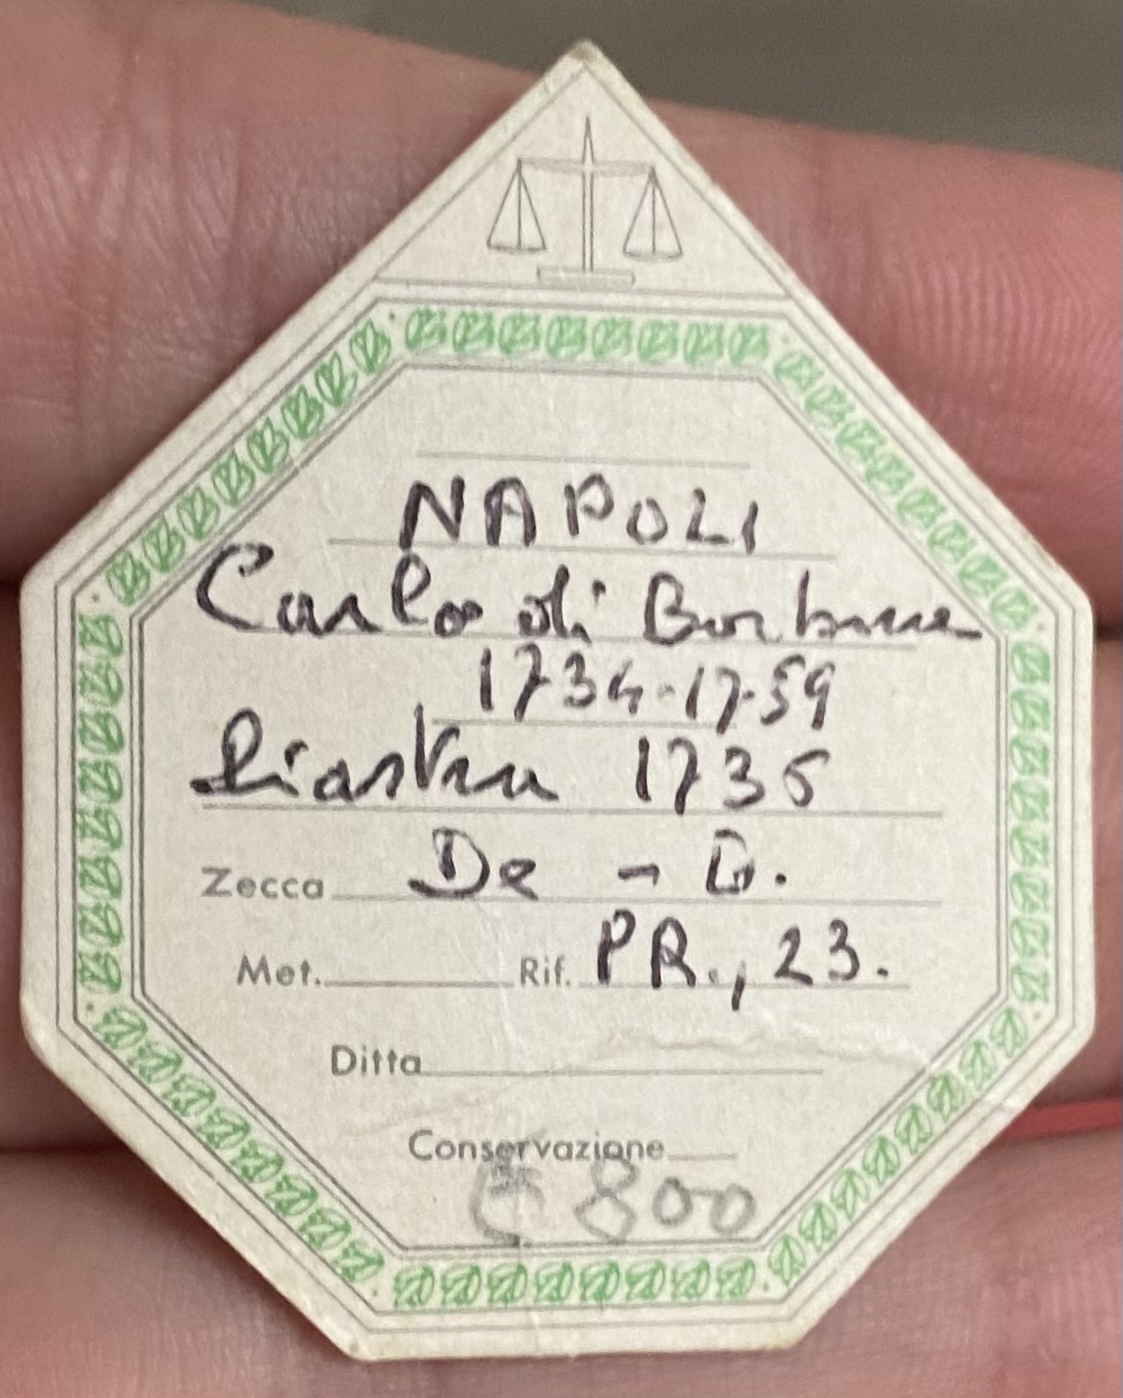 NAPOLI
Carlo di Borbone
1734-1759
Piastra 1735
Zecca De - G.
Met. Rif. PR., 23.
Ditta
Conservazione
€ 800